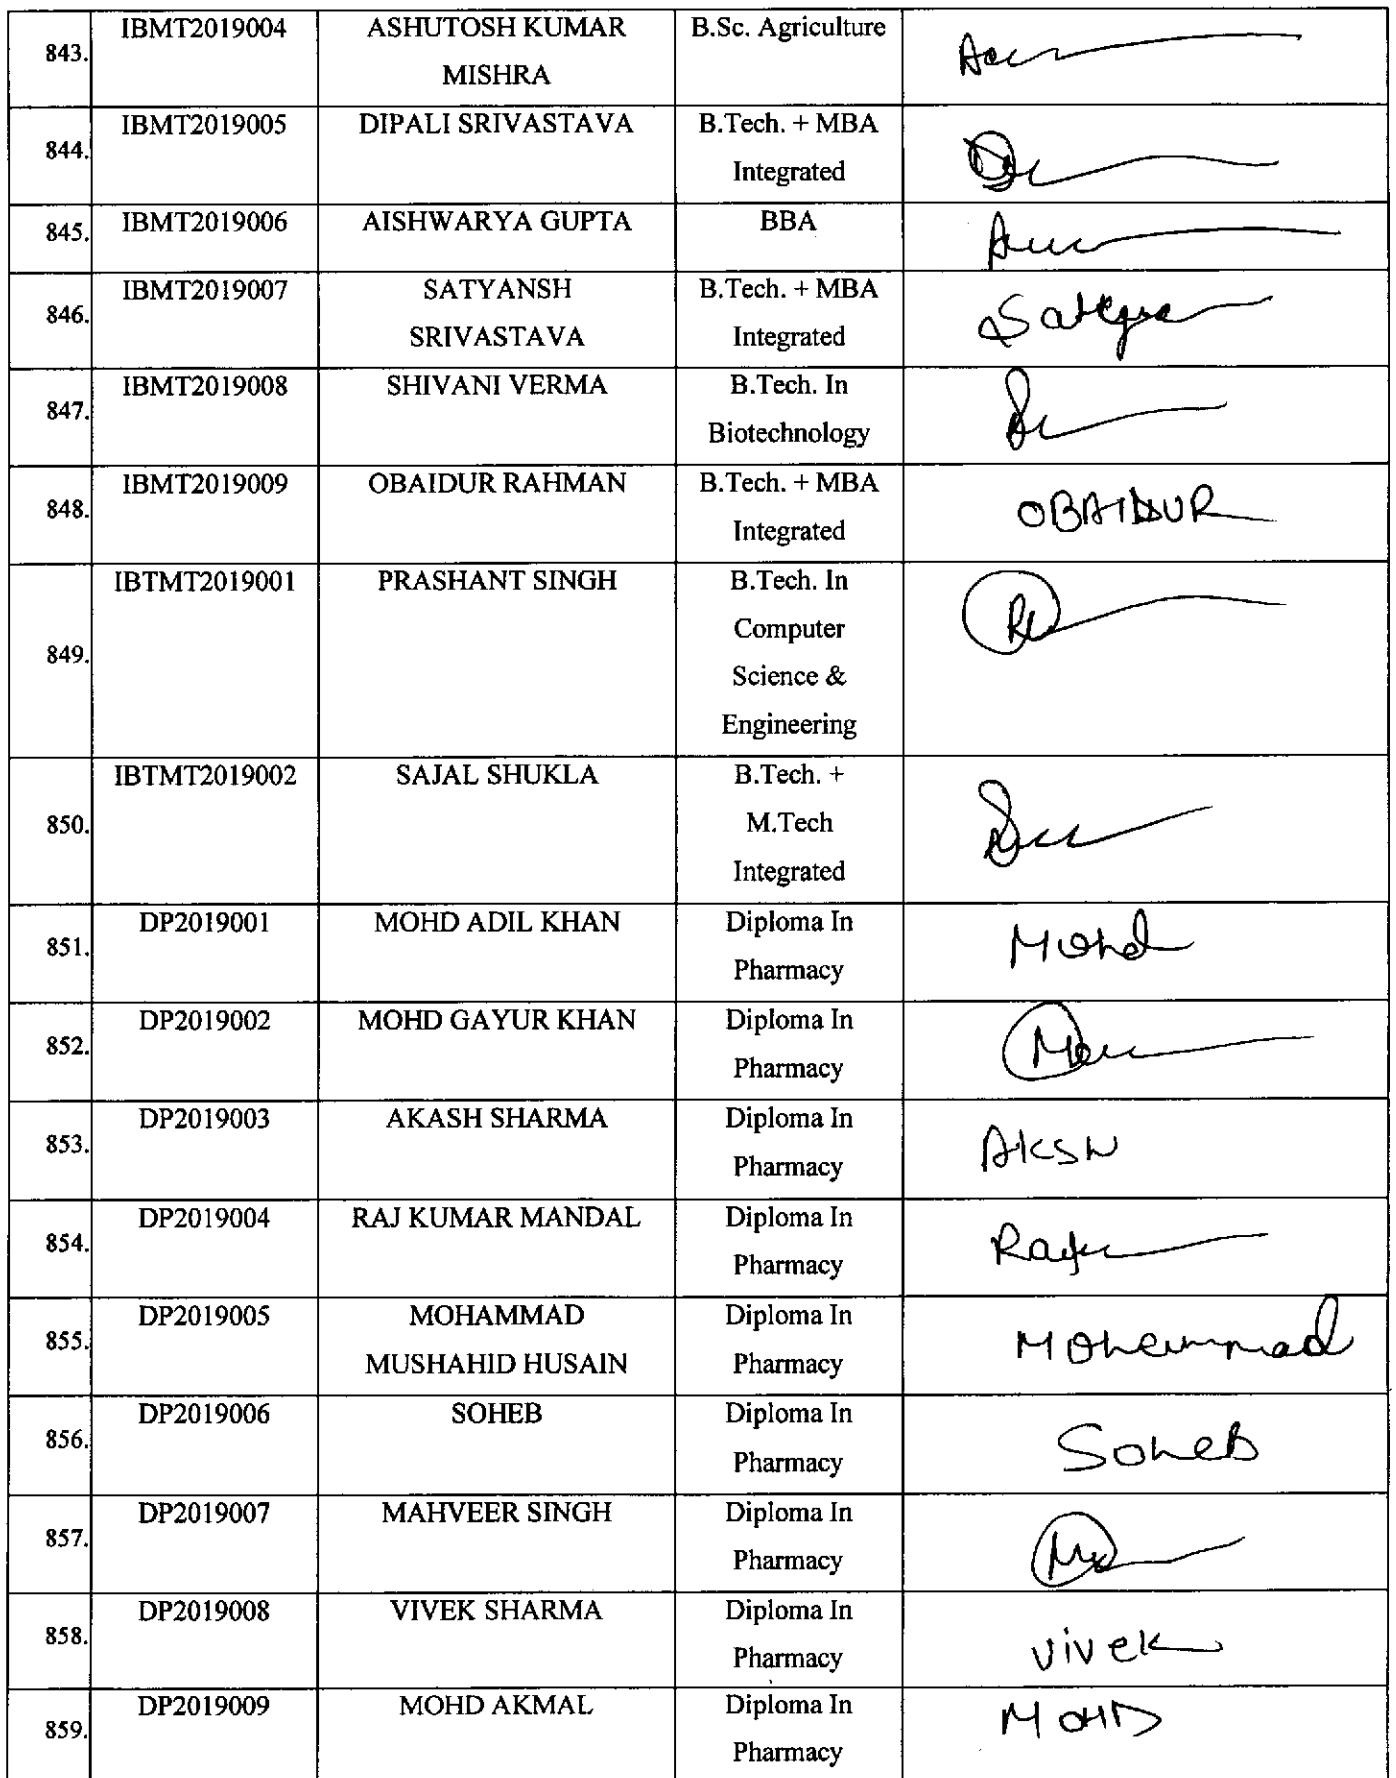 843. IBMT2019004 ASHUTOSH KUMAR B.Sc. Agriculture
MISHRA
844. IBMT2019005 DIPALI SRIVASTAVA B.Tech. + MBA
Integrated
845. IBMT2019006 AISHWARYA GUPTA BBA
846. IBMT2019007 SATYANSH B.Tech. + MBA
SRIVASTAVA Integrated
847. IBMT2019008 SHIVANI VERMA B.Tech. In
Biotechnology
848. IBMT2019009 OBAIDUR RAHMAN B.Tech. + MBA
Integrated OBAIDUR
849. IBTMT2019001 PRASHANT SINGH B.Tech. In
Computer
Science &
Engineering
850. IBTMT2019002 SAJAL SHUKLA B.Tech. +
M.Tech
Integrated
851. DP2019001 MOHD ADIL KHAN Diploma In Mohd
Pharmacy
852. DP2019002 MOHD GAYUR KHAN Diploma In
Pharmacy
853. DP2019003 AKASH SHARMA Diploma In
Pharmacy
854. DP2019004 RAJ KUMAR MANDAL Diploma In
Pharmacy
855. DP2019005 MOHAMMAD Diploma In Mohammad
MUSHAHID HUSAIN Pharmacy
856. DP2019006 SOHEB Diploma In SoheB
Pharmacy
857. DP2019007 MAHVEER SINGH Diploma In
Pharmacy
858. DP2019008 VIVEK SHARMA Diploma In
Pharmacy vivek
859. DP2019009 MOHD AKMAL Diploma In MOHD
Pharmacy